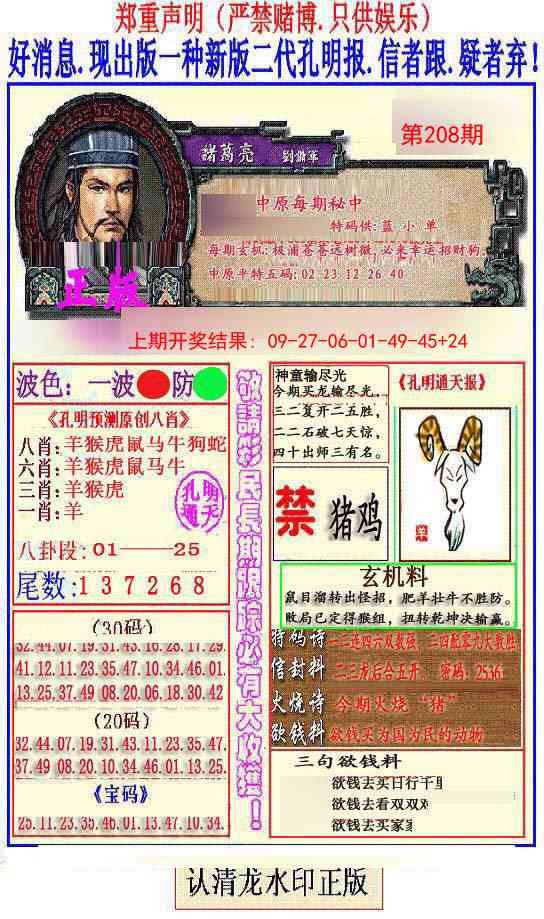 郑重声明（严禁赌博.只供娱乐）
好消息.现出版一种新版二代孔明报.信者跟.疑者弃!
諸葛亮 劉備軍
第208期
中原每期秘中
特码供:蓝 小 单
每期玄机:极浦苍苍远树微,必来幸运招财狗.
中原平特五码:02 23 12 26 40
正版
上期开奖结果：09-27-06-01-49-45+24
波色：一波 防
《孔明预测原创八肖》
八肖:羊猴虎鼠马牛狗蛇
六肖:羊猴虎鼠马牛
三肖:羊猴虎
一肖:羊
孔明
通天
八卦段:01——25
尾数:137268
(30码)
32.44.07.19.31.43.16.28.17.29.
41.12.11.23.35.47.10.34.46.01.
13.25.37.49.08.20.06.18.30.42
(20码)
32.44.07.19.31.43.11.23.35.47.
37.49.08.20.10.34.46.01.13.25.
《宝码》
25.11.23.35.46.01.13.47.10.34.
敬請彩民長期跟踪必有大收獲！
神童输尽光
今期买龙输尽光,
三二复开二五胜,
二二石破七天惊,
四十出师三有名。
《孔明通天报》
禁 猪鸡
玄机料
鼠目溜转出怪招，肥羊壮牛不胜防。
败局已定得猴组，扭转乾坤决输赢。
特码诗 一二连四六双数强，三四配零九大数胜
信封料 二三龙后合五开. 密码：2536.
火烧诗 今期火烧“猪”
欲钱料 欲钱买为国为民的动物
三句欲钱料
欲钱去买日行千
欲钱去看双双
欲钱去买家
认清龙水印正版